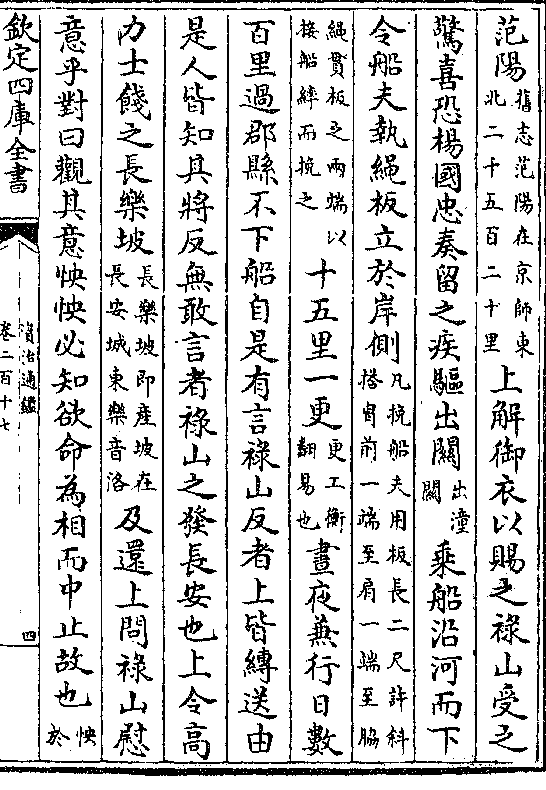 范陽舊志范陽在京師東北二十五百二十里上解御衣以賜之祿山受之
驚喜恐楊國忠奏留之疾驅出關出潼關乘船沿河而下
令船夫執繩板立於岸側凡挽船夫用板長二尺許斜搭胷前一端至肩一端至脇
繩貫板之兩端以接船縴而挽之十五里一更更工衡翻易也晝夜兼行日數
百里過郡縣不下船自是有言祿山反者上皆縛送由
是人皆知其將反無敢言者祿山之發長安也上令高
力士餞之長樂坡長樂坡即產坡在長安城東樂音洛及還上問祿山慰
意乎對曰觀其意怏怏必知欲命為相而中止故也怏於
欽定四庫全書
資治通鑑
卷二百十七
四